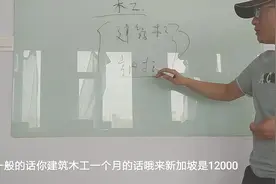 木工
建筑木工
一般的话你建筑木工一个月的话哦来新加坡是12000